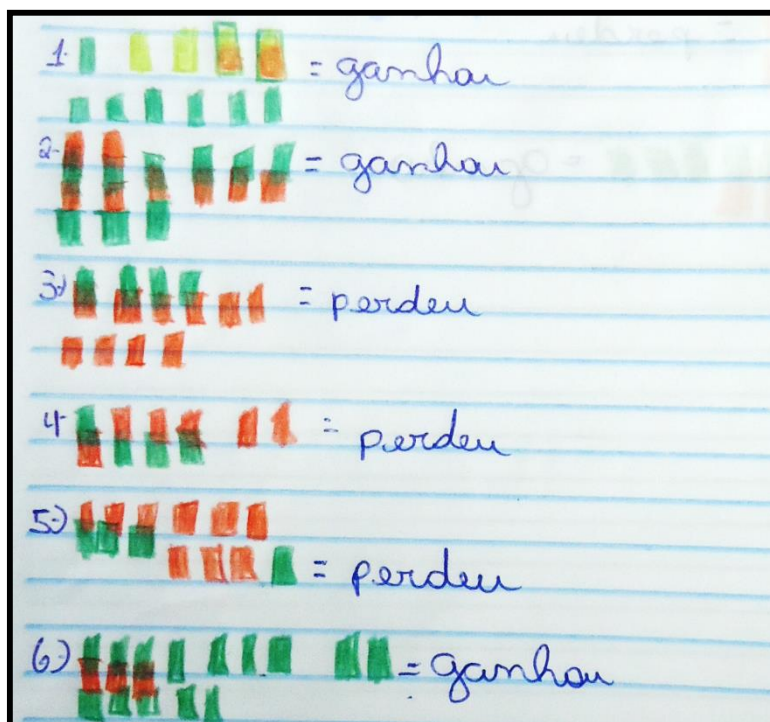 1. = ganhou
2- = ganhou
3-) = perdeu
4- = perdeu
5-) = perdeu
6-) = ganhou